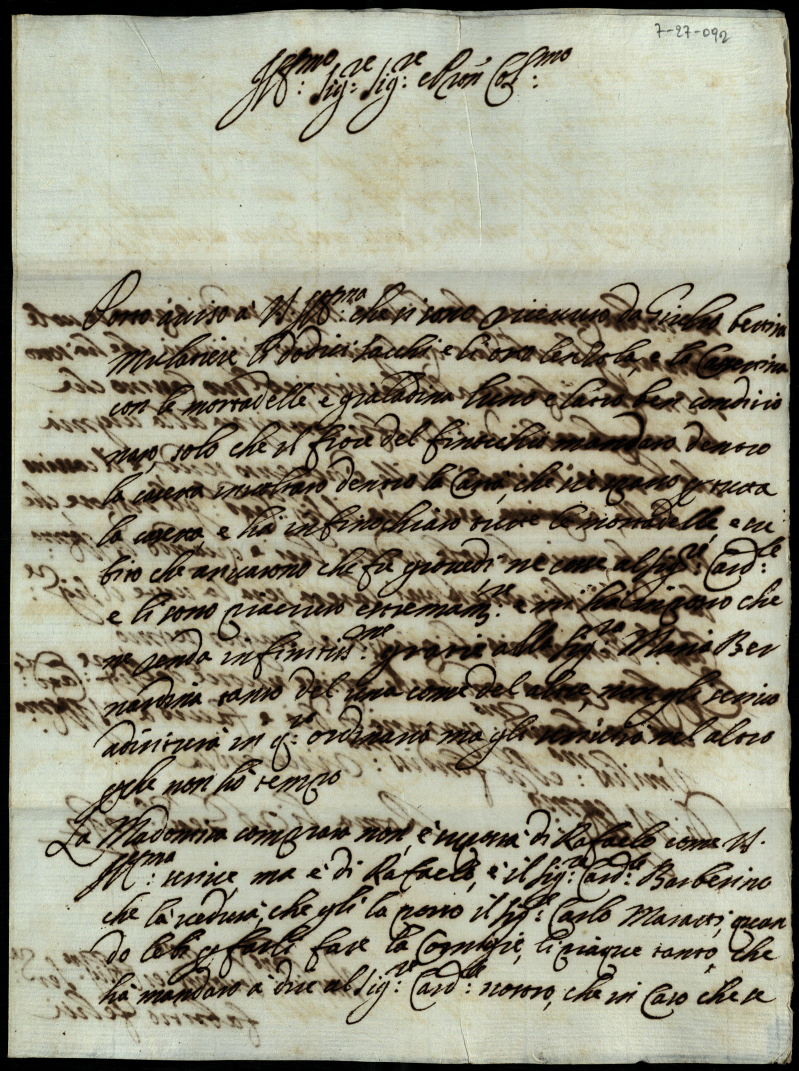 7-27-092
Ill:mo Sig:re Sig:re e Pron Col:mo
Porto aviso à V. Ill:ma che si sono ricevuto da Giulio
Mulatiere li dodici sacchi e li otto e la Casettina
con le mortadelle e gialadina l'uno e l'atro ben conditio
nato, solo che il fiore del finochio mandato dentro
la caseta involtato dentro la Carta, che si è per tutta
la caseta e ha infinochiato tutte le mortadelle, e su
bito che arivarono che fu giovedi ne al Sig:re Card:le
e li sono piaciuto estremam:te e mi ha imposto che
ne renda infinitiss:me gratie alla Sig:ra Maria Ber
nardina tanto del una come del altra, non gli scrivo
adiritura in q:to ordinario ma gli scriverò nel altro
perche non hò tempo
La Madonina comprata non è copia di Rafaele come V.
Ill:ma scrive, ma è di Rafaele, e il Sig:re Card:le Barberino
che la veduta, che gli la portò il Sig:re Carlo Maratti, quan
do l'ebe per farli fare la Cornige, li piaque tanto, che
hà mandato à dire al Sig:re Card:le nostro, che in Caso che se